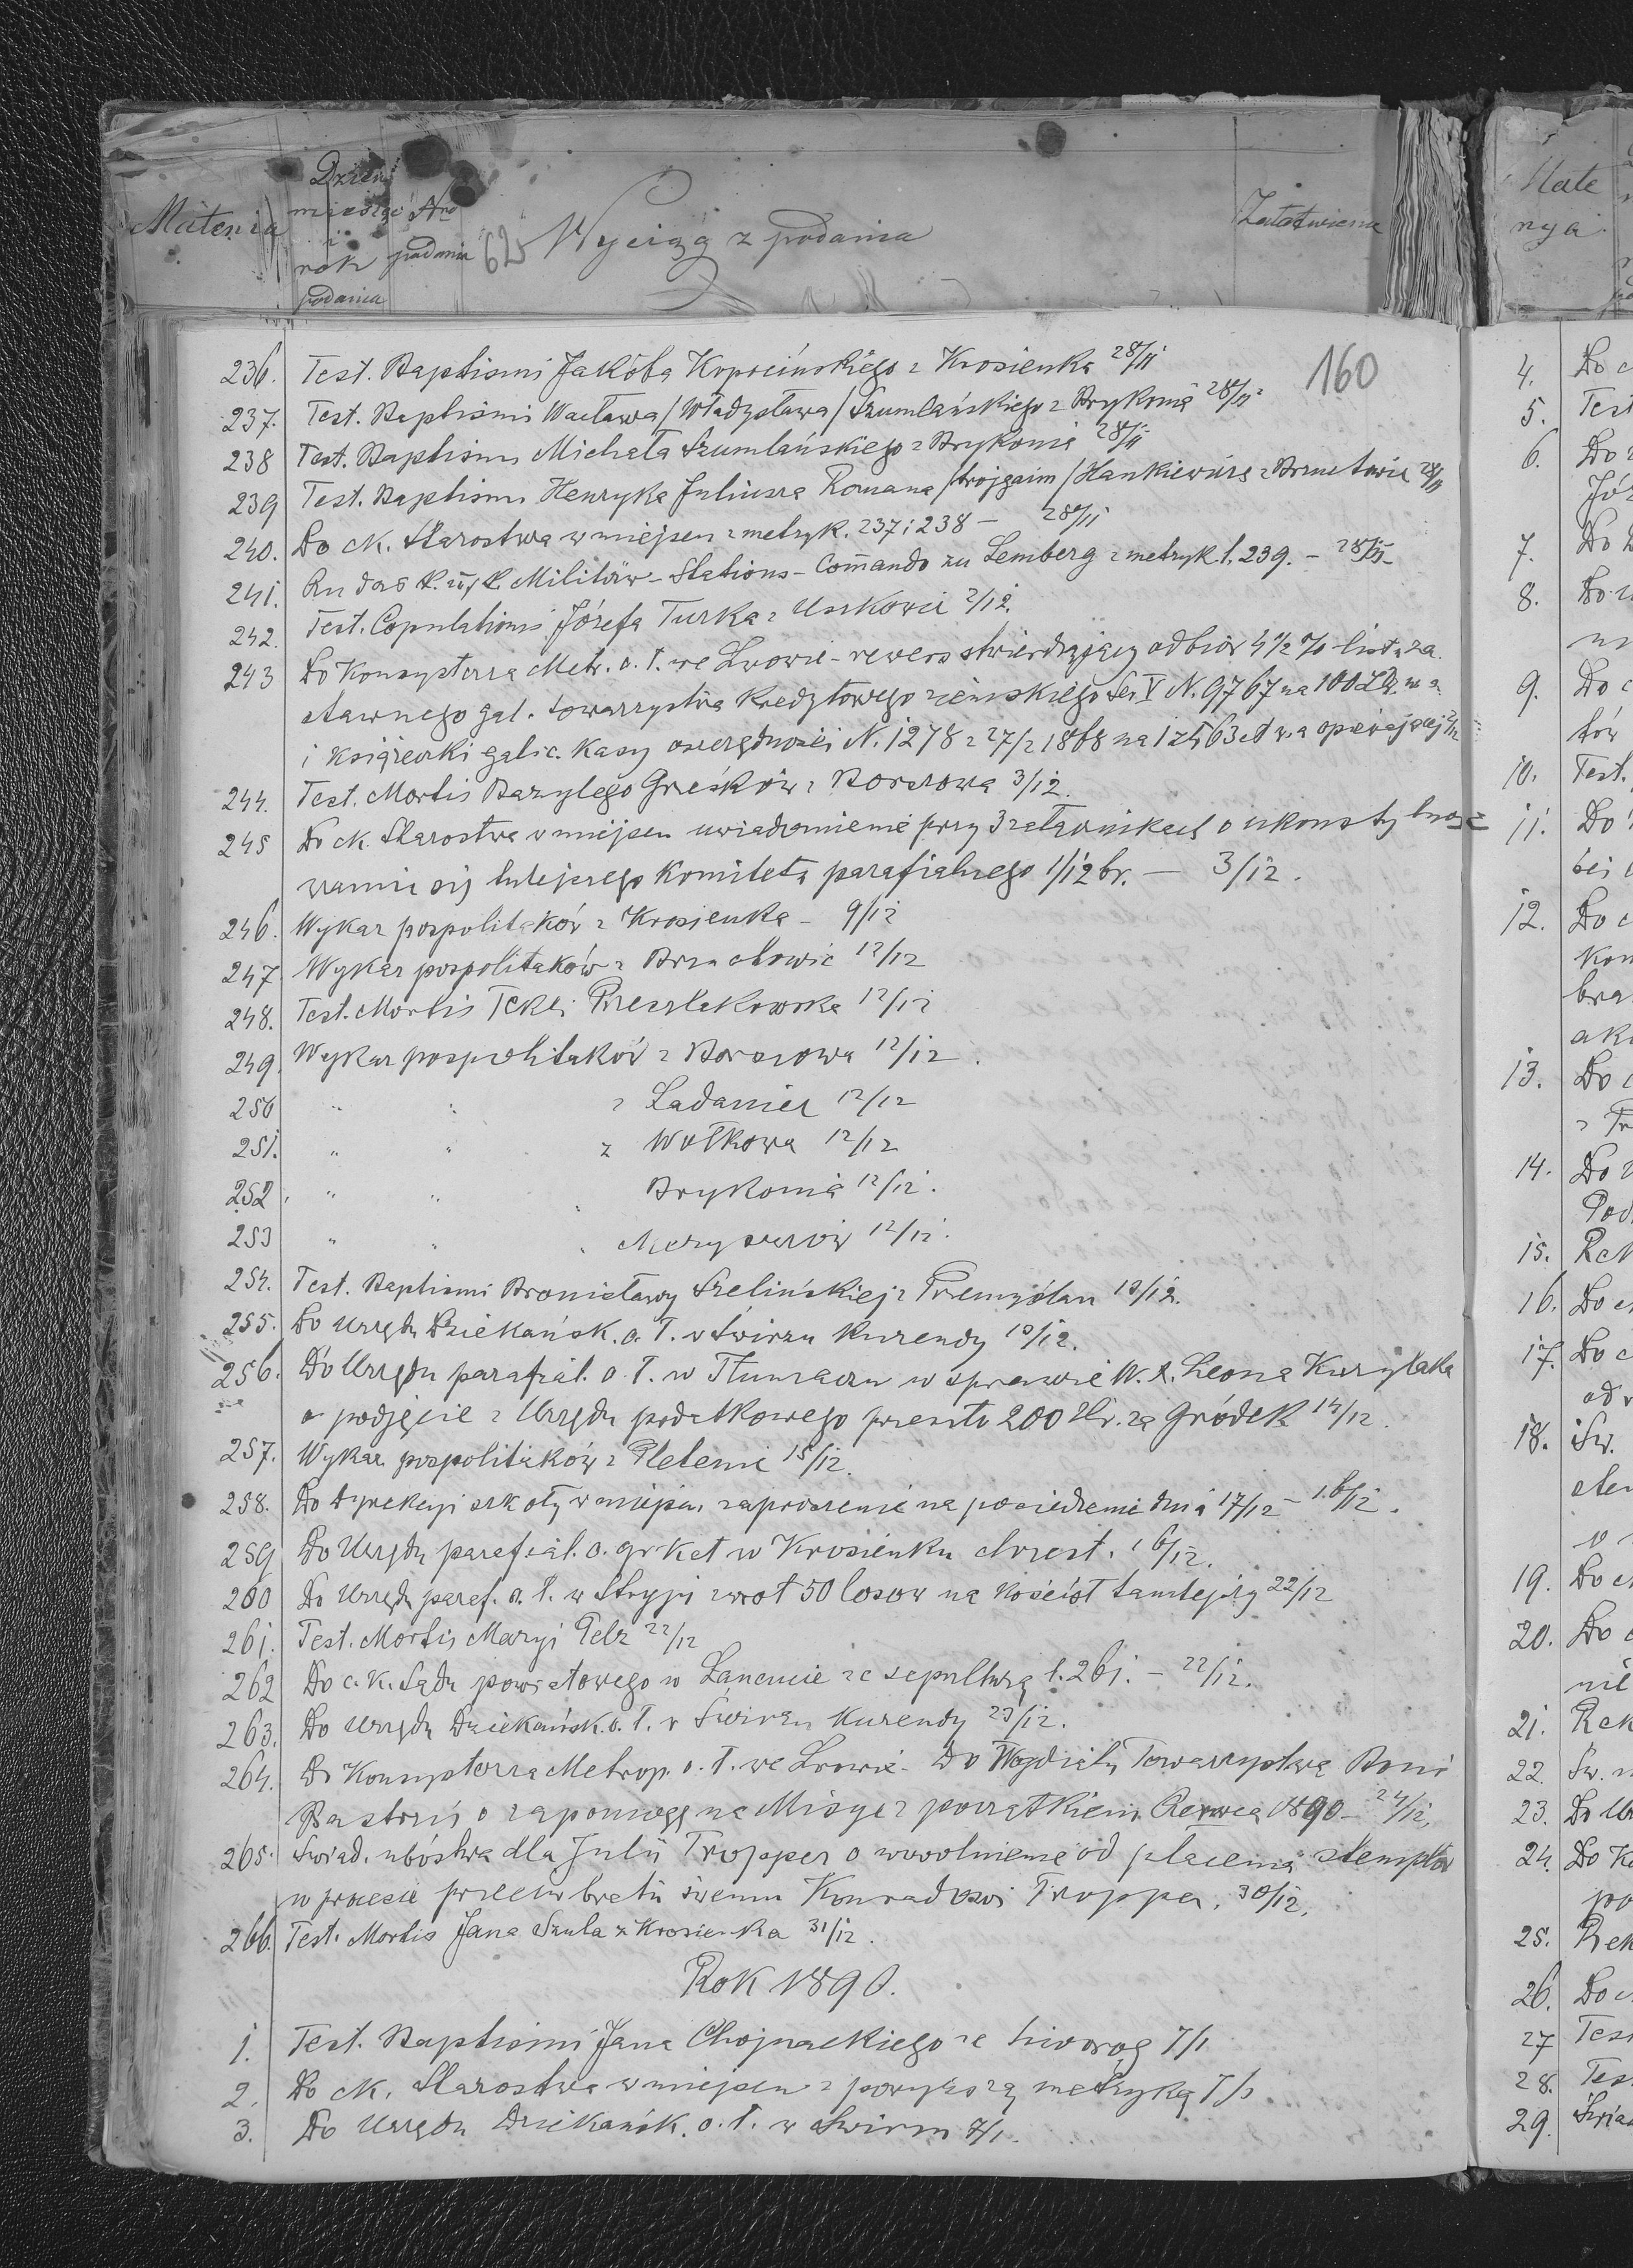 Materia
Dzień
miesiąc
i
rok
podania
Nro
podania
62
Wyciąg z podania
Załatwienie
Mate
rya
160
236. Test. Baptismi Jakóba Kopocińskiego z Krosienka 28/11
237. Test. Baptismi Wacława /Władysława/ Szumlańskiego z Brykonia 28/11
238 Test. Baptismi Michała Szumlańskiego z Brykonia 28/11
239 Test. Baptismi Henryka Juliusza Romana /trojgaim/ Hankiewicz 28/11
240. Do ck. Starostwa w miejscu z metryk. 237 i 238 – 28/11
241. An das k. und k. Militär-Stations-Commando zu Lemberg z metryk l. 239. – 28/11
242. Test. Copulationis Józefa Turka z Uszkowic 2/12.
243 Do Konsystorza Metr. o. ł. we Lwowie – rewers stwierdzający odbiór 4 1/2 % listu za
stawnego gal. towarzystwa kredytowego ziemskiego Ser. V N. 9767 na 100 w a
i książeczki galic. Kasy oszczędności N. 1278 z 27/2 1868 na 1 zł 63 ct w. a opiewającej 2/12
244. Test. Mortis Bazylego Greśków z Borszowa 3/12.
245 Do ck. Starostwa w miejscu uwiadomienie przy 3 załącznikach o ukonstytuo
waniu się tutejszego Komitetu parafialnego 1/12 br. – 3/12.
246. Wykaz pospolitaków z Krosienka – 9/12
247. Wykaz pospolitaków z Brzuchowic 12/12
248. Test. Mortis Tekli Preszlakowska 12/12
249. Wykaz pospolitaków z Borszowa 12/12.
250 " " z Ładaniec 12/12
251. " " z Wołkowa 12/12
252. " " Brykonia 12/12.
253 " " Meryszczów 12/12.
254. Test. Baptismi Bronisławy Szelińskiej z Przemyślan 13/12.
255. Do Urzędu Dziekańsk. o. ł. w Świrzu Kurendy 13/12.
256. Do Urzędu parafial. o. ł. w Tłumaczu w sprawie W. X. Leona Kurzylaka
o podjęcie z Urzędu podatkowego kwoty 200 Złr. za Gródek 14/12.
257. Wykaz pospolitaków z Pletenic 15/12.
258. Do dyrekcyi szkoły w miejscu zaproszenie na posiedzenie dnia 17/12 – 16/12.
259 Do Urzędu parafial. o. gr kat w Krosienku chrzest. 16/12.
260 Do Urzędu paraf. o. ł. w Stryju zwrot 50 losów na kościół tamtejszy 22/12
261. Test. Mortis Maryi Pelz 22/12
262 Do c. k. Sądu powiatowego w Łańcucie ze sepulturą l. 261. – 22/12.
263. Do Urzędu Dziekańsk. o. ł. w Świrzu Kurendy 23/12.
264. Do Konsystorza Metrop. o. ł. we Lwowie – Do Wydziału Towarzystwa Boni
Pastoris o zapomogę na Misye z początkiem Czerwca 1890 – 24/12,
265. Świad. ubóstwa dla Julii Tropper o uwolnienie od płacenia stempla
w procesie przeciw bratu swemu Konradowi Tropper, 30/12,
266. Test. Mortis Jana Szula z Krosienka 31/12.
Rok 1890.
1. Test. Baptismi Jana Chojnackiego ze 7/1
2. Do ck. Starostwa w miejscu z powyższą metryką 7/1
3. Do Urzędu Dziekańsk. o. ł. w Świrzu 7/1.
4. Do c
5. Test
6. Do
Józ
7. Do
8. Do
9. Do c
tów
10. Test.
11. Do
12. Do c
kon
bra
13. Do c
14. Do
Pod
15. Rek
16. Do c
17. Do c
od
18. Św.
19. Do c
20. Do c
nie
21. Rek
22. Św.
23. Do Ur
24. Do Ko
po
25. Rek
26. Do c
27 Test
28. Tes
29. Świad